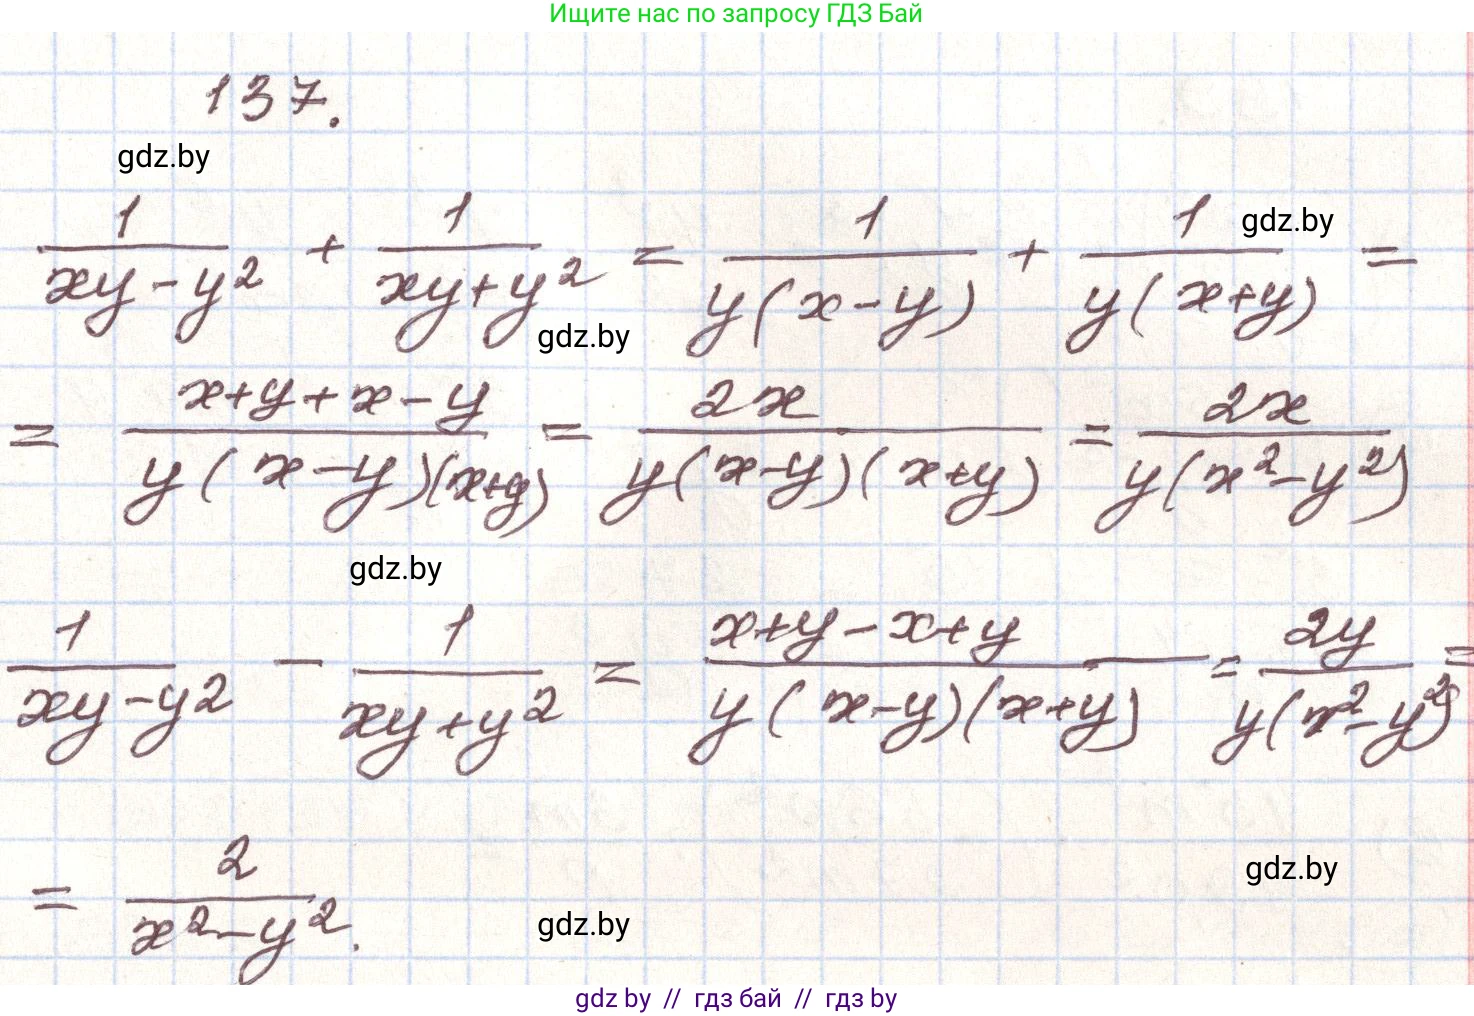 Ищите нас по запросу ГДЗ Бай
137.
gdz.by
1/(xy-y²) + 1/(xy+y²) = 1/(y(x-y)) + 1/(y(x+y)) =
gdz.by
gdz.by
= (x+y+x-y)/(y(x-y)(x+y)) = 2x/(y(x-y)(x+y)) = 2x/(y(x²-y²))
gdz.by
1/(xy-y²) - 1/(xy+y²) = (x+y-x+y)/(y(x-y)(x+y)) = 2y/(y(x²-y²)) =
= 2/(x²-y²).
gdz.by
gdz.by
gdz by // гдз бай // гдз by